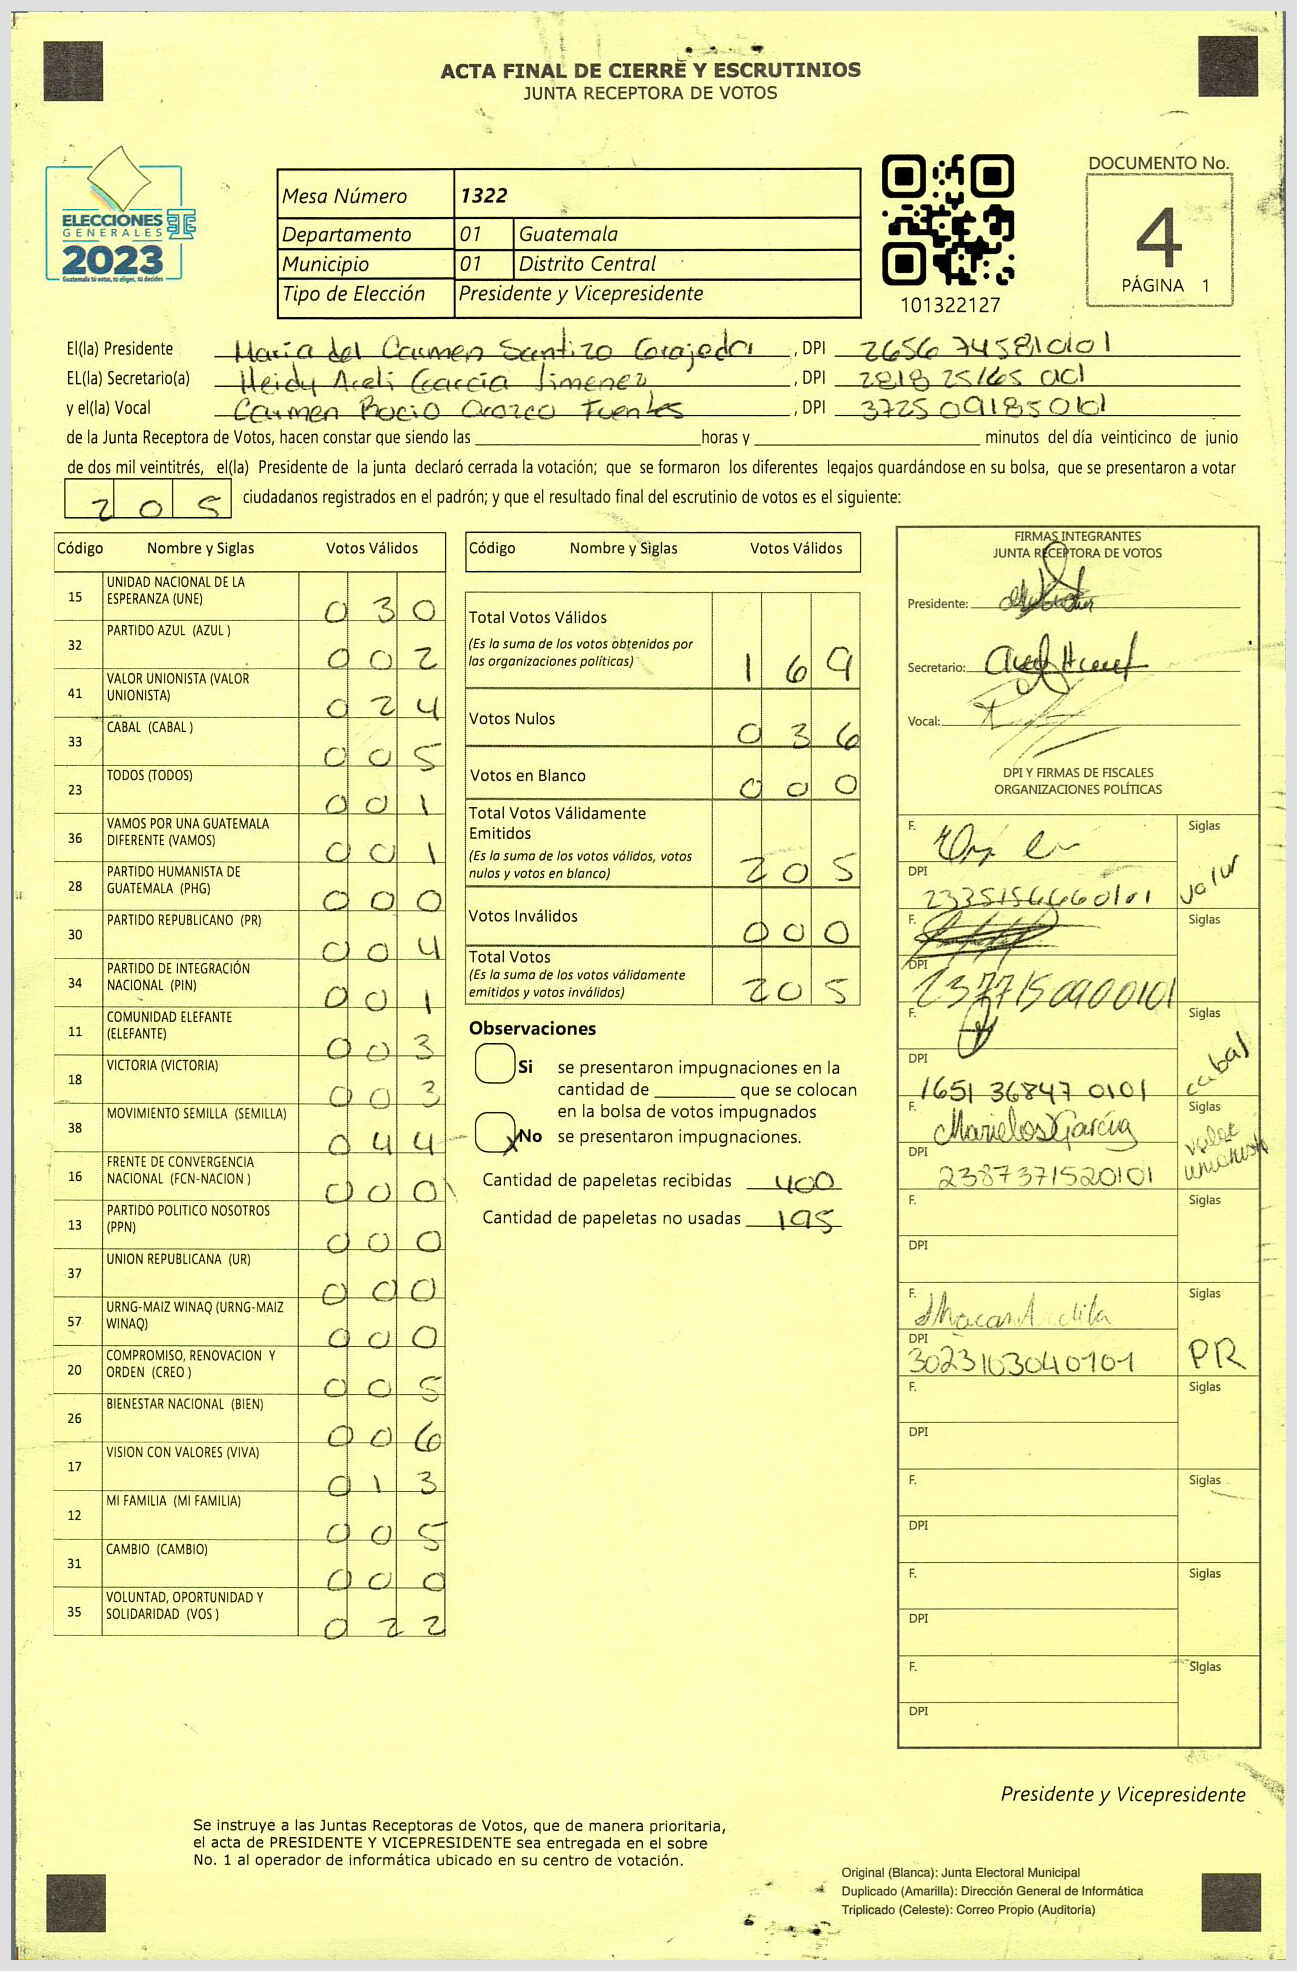 ACTA FINAL DE CIERRE Y ESCRUTINIOS
JUNTA RECEPTORA DE VOTOS
ELECCIONES
GENERALES
2023
Guatemala tú votas, tú eliges, tú decides
Mesa Número 1322
Departamento 01 Guatemala
Municipio 01 Distrito Central
Tipo de Elección Presidente y Vicepresidente
101322127
DOCUMENTO No.
4
PÁGINA 1
El(la) Presidente Maria del Carmen Santizo , DPI 2656745810101
EL(la) Secretario(a) Heidy Areli García Jimenez , DPI
y el(la) Vocal Carmen Rocio Orozco Fuentes , DPI 3725091850101
de la Junta Receptora de Votos, hacen constar que siendo las horas y minutos del día veinticinco de junio
de dos mil veintitrés, el(la) Presidente de la junta declaró cerrada la votación; que se formaron los diferentes legajos guardándose en su bolsa, que se presentaron a votar
205 ciudadanos registrados en el padrón; y que el resultado final del escrutinio de votos es el siguiente:
Código Nombre y Siglas Votos Válidos
15 UNIDAD NACIONAL DE LA ESPERANZA (UNE) 030
32 PARTIDO AZUL (AZUL ) 002
41 VALOR UNIONISTA (VALOR UNIONISTA) 024
33 CABAL (CABAL ) 005
23 TODOS (TODOS) 001
36 VAMOS POR UNA GUATEMALA DIFERENTE (VAMOS) 001
28 PARTIDO HUMANISTA DE GUATEMALA (PHG) 000
30 PARTIDO REPUBLICANO (PR) 004
34 PARTIDO DE INTEGRACIÓN NACIONAL (PIN) 001
11 COMUNIDAD ELEFANTE (ELEFANTE) 003
18 VICTORIA (VICTORIA) 003
38 MOVIMIENTO SEMILLA (SEMILLA) 044
16 FRENTE DE CONVERGENCIA NACIONAL (FCN-NACION ) 000
13 PARTIDO POLITICO NOSOTROS (PPN) 000
37 UNION REPUBLICANA (UR) 000
57 URNG-MAIZ WINAQ (URNG-MAIZ WINAQ) 000
20 COMPROMISO, RENOVACION Y ORDEN (CREO ) 005
26 BIENESTAR NACIONAL (BIEN) 006
17 VISION CON VALORES (VIVA) 013
12 MI FAMILIA (MI FAMILIA) 005
31 CAMBIO (CAMBIO) 000
35 VOLUNTAD, OPORTUNIDAD Y SOLIDARIDAD (VOS ) 022
Código Nombre y Siglas Votos Válidos
Total Votos Válidos 169
(Es la suma de los votos obtenidos por
las organizaciones políticas)
Votos Nulos 036
Votos en Blanco 000
Total Votos Válidamente
Emitidos 205
(Es la suma de los votos válidos, votos
nulos y votos en blanco)
Votos Inválidos 000
Total Votos 205
(Es la suma de los votos válidamente
emitidos y votos inválidos)
Observaciones
Si se presentaron impugnaciones en la
cantidad de que se colocan
en la bolsa de votos impugnados
X No se presentaron impugnaciones.
Cantidad de papeletas recibidas 400
Cantidad de papeletas no usadas 195
FIRMAS INTEGRANTES
JUNTA RECEPTORA DE VOTOS
Presidente:
Secretario:
Vocal:
DPI Y FIRMAS DE FISCALES
ORGANIZACIONES POLÍTICAS
F. Siglas
DPI 2335156660101 valor
F. Siglas
DPI 2377150900101
F. Siglas
DPI 1651 36847 0101 cabal
F. Marielos García Siglas
DPI 2387371520101 valor unionista
F. Siglas
DPI
F. Siglas
DPI 3023103040101 PR
F. Siglas
DPI
F. Siglas
DPI
F. Siglas
DPI
F. Siglas
DPI
Presidente y Vicepresidente
Se instruye a las Juntas Receptoras de Votos, que de manera prioritaria,
el acta de PRESIDENTE Y VICEPRESIDENTE sea entregada en el sobre
No. 1 al operador de informática ubicado en su centro de votación.
Original (Blanca): Junta Electoral Municipal
Duplicado (Amarilla): Dirección General de Informática
Triplicado (Celeste): Correo Propio (Auditoría)